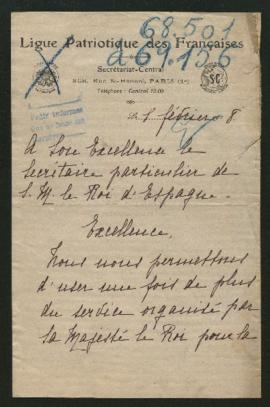 68.501
a 69.156
Ligue Patriotique des Françaises
Secrétariat-Central
Rue St-Honoré, PARIS
Téléphone : Central
SC
Pedir informes
Le 1 février 8
A Son Excellence le
Secrétaire particulier de
S. M. le Roi d'Espagne.
Excellence,
Nous nous permettons
d'user une fois de plus
du service organisé par
Sa Majesté le Roi pour la